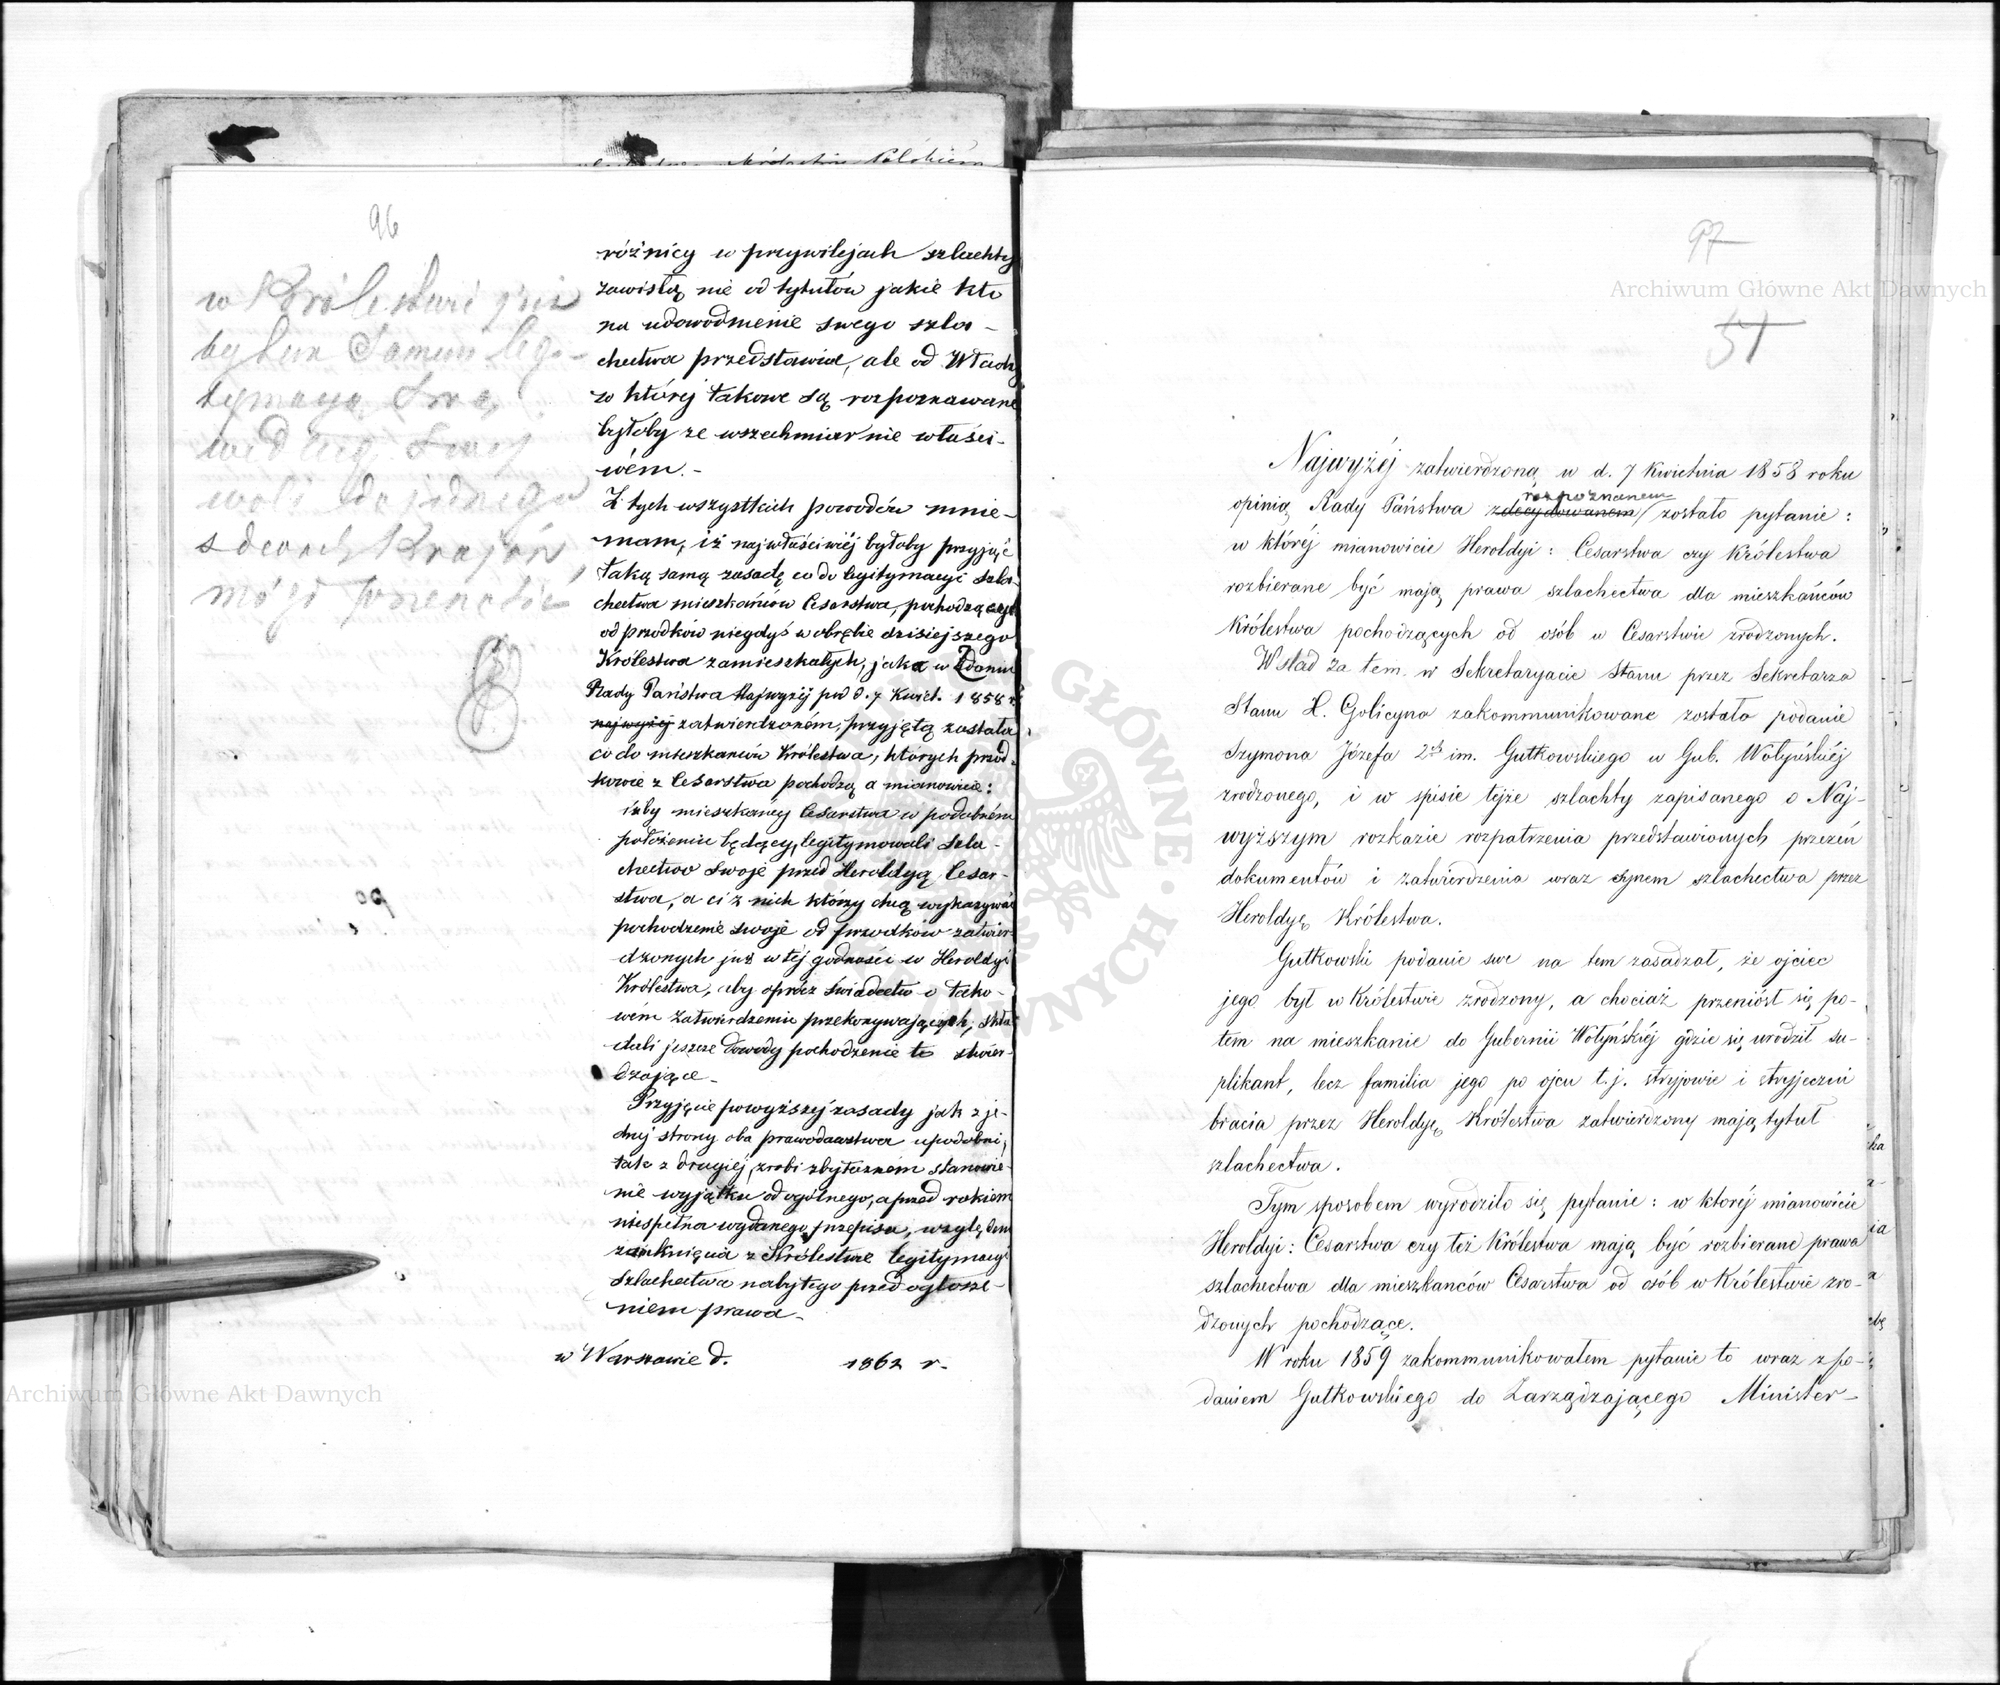 96
w Królestwie już
tym samem leg-
tymacyą swą
według swej
woli do jednego
z dwóch Krajów
mógł przenieść
różnicy w przywilejach szlachty
zawisłą nie od tytułów jakie kto
na udowodnienie swego szla-
chectwa przedstawia, ale od Władzy
w której takowe są rozpoznawane
byłoby ze wszechmiar nie właści-
wém.-
Z tych wszystkich powodów mnie-
mam, iż najwłaściwiéj byłoby przyjąć
taką samą zasadę co do legitymacyi szla-
chectwa mieszkańców Cesarstwa, pochodzących
od przodków niegdyś w obrębie dzisiejszego
Królestwa zamieszkałych, jaka w Zdaniu
Rady Państwa Najwyżéj pod d. 7 Kwiet. 1858 r.
najwyżej zatwierdzoném, przyjętą została
co do mieszkańców Królestwa, których przod-
kowie z Cesarstwa pochodzą a mianowicie:
iżby mieszkańcy Cesarstwa w podobném
położeniu będący, legitymowali szla-
chectwo swoje przed Heroldyą Cesar-
stwa, a ci z nich którzy chcą wykazywać
pochodzenie swoje od przodków zatwier-
dzonych już w téj godności w Heroldyi
Królestwa, aby oprócz świadectw o tako-
wém zatwierdzeniu przekonywających, skła-
dali jeszcze dowody pochodzenie to stwier-
dzające.-
Przyjęcie powyższej zasady jak z je-
dnej strony oba prawodawstwa upodobni,
tak z drugiéj, zrobi zbyteczném stanowie-
nie wyjątku od ogólnego, a przed rokiem
niespełna wydanego przepisu, względem
zamknięcia w Królestwie legitymacyi
szlachectwa nabytego przed ogłosze-
niem prawa.-
w Warszawie d. 1862 r.
97
51
Najwyżéj zatwierdzoną w d. 7 Kwietnia 1858 roku
rozpoznanem
opinią Rady Państwa zdecydowanem zostało pytanie:
w któréj mianowicie Heroldyi: Cesarstwa czy Królestwa
rozbierane być mają prawa szlachectwa dla mieszkańców
Królestwa pochodzących od osób w Cesarstwie zrodzonych.
W ślad za tem w Sekretaryacie Stanu przez Sekretarza
Stanu X. Golicyna zakommunikowane zostało podanie
Szymona Józefa 2ch im. Gutkowskiego w Gub. Wołyńskiéj
zrodzonego, i w spisie tejże szlachty zapisanego o Naj-
wyższym rozkazie rozpatrzenia przedstawionych przezeń
dokumentów i zatwierdzenia wraz synem szlachectwa przez
Heroldyę Królestwa.
Gutkowski podanie swe na tem zasadzał, że ojciec
jego był w Królestwie zrodzony, a chociaż przeniósł się po-
tem na mieszkanie do Gubernii Wołyńskiéj gdzie się urodził su-
plikant, lecz familia jego po ojcu t.j. stryjowie i stryjeczni
bracia przez Heroldyę Królestwa zatwierdzony mają tytuł
szlachectwa.
Tym sposobem wyrodziło się pytanie: w któréj mianowicie
Heroldyi: Cesarstwa czy też Królestwa mają być rozbierane prawa
szlachectwa dla mieszkańców Cesarstwa od osób w Królestwie zro-
dzonych pochodzące.
W roku 1859 zakommunikowałem pytanie to wraz z po-
daniem Gutkowskiego do Zarządzającego Minister-
Archiwum Główne Akt Dawnych
Archiwum Główne Akt Dawnych